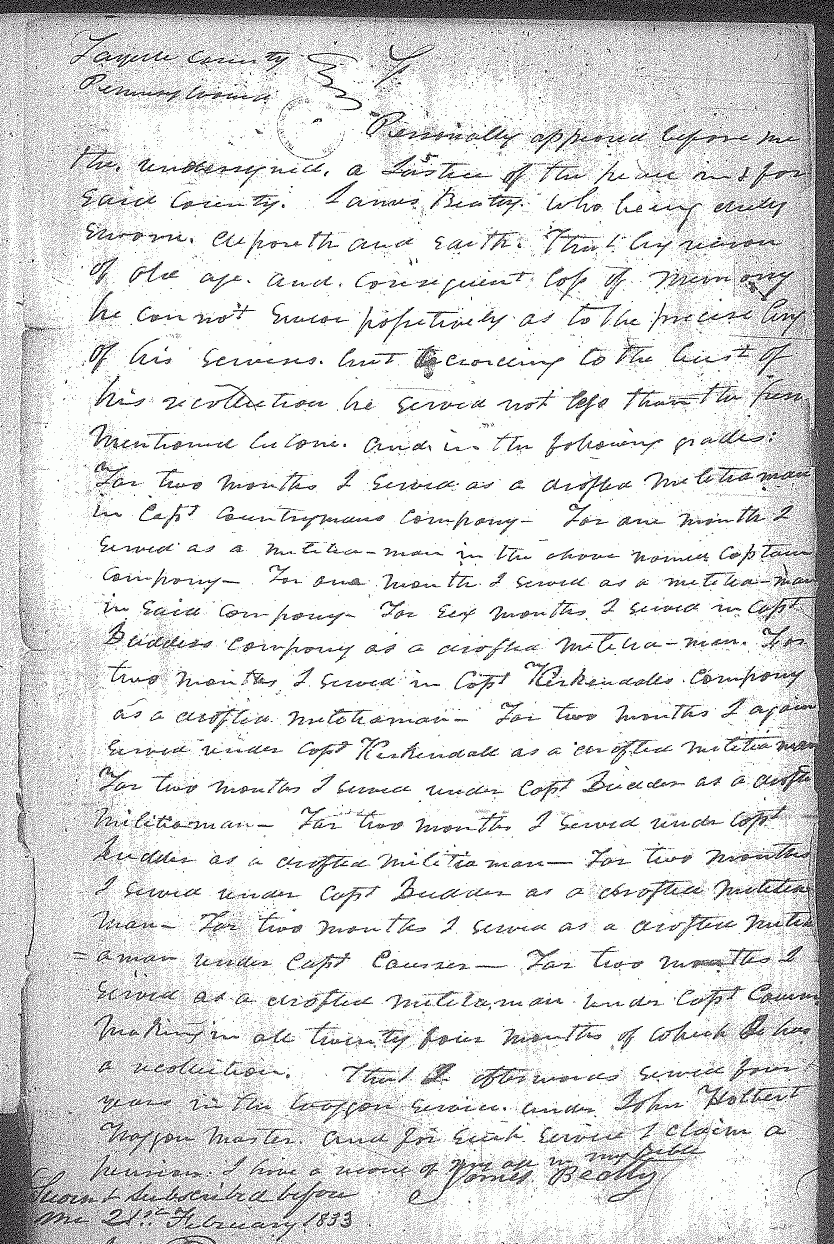 Fayette County
Pennsylvania } Ss
Personally appeared before me
the undersigned, a Justice of the peace in & for
Said County. James Beatty. Who being duly
Sworn. deposeth and Saith. That by reason
of old age. and. Consequent loss of memory
he can not Swear possitively as to the precise
of his Services. but according to the best of
his recollection he served not less than the
mentioned below. and in the following grades:
For two months I served as a drafted militiaman
in Capt Countrymans Company— For one month I
served as a militia-man in the above named Captain
Company— For one month I served as a militia-man
in said Company— For six months I served in Capt
Budders Company as a drafted militia-man. For
two months I served in Capt Kirkendales Company
as a drafted militiaman— For two months I again
served under Capt Kirkendall as a drafted militiaman
For two months I served under Capt Budder as a drafted
militiaman— For two months I served under Capt
Budder as a drafted militiaman— For two months
I served under Capt Budder as a drafted militia
man— For two months I served as a drafted militi
=aman under Capt — For two months I
served as a drafted militiaman under Capt
making in all twenty four months of which he has
a recollection. That I afterwards served four
years in the Waggon Service. under John Holbert
Waggon Master. and for such service I claim a
pension. I have a record of my age in my bible
James Beatty
Sworn & Subscribed before
me 21st February 1833